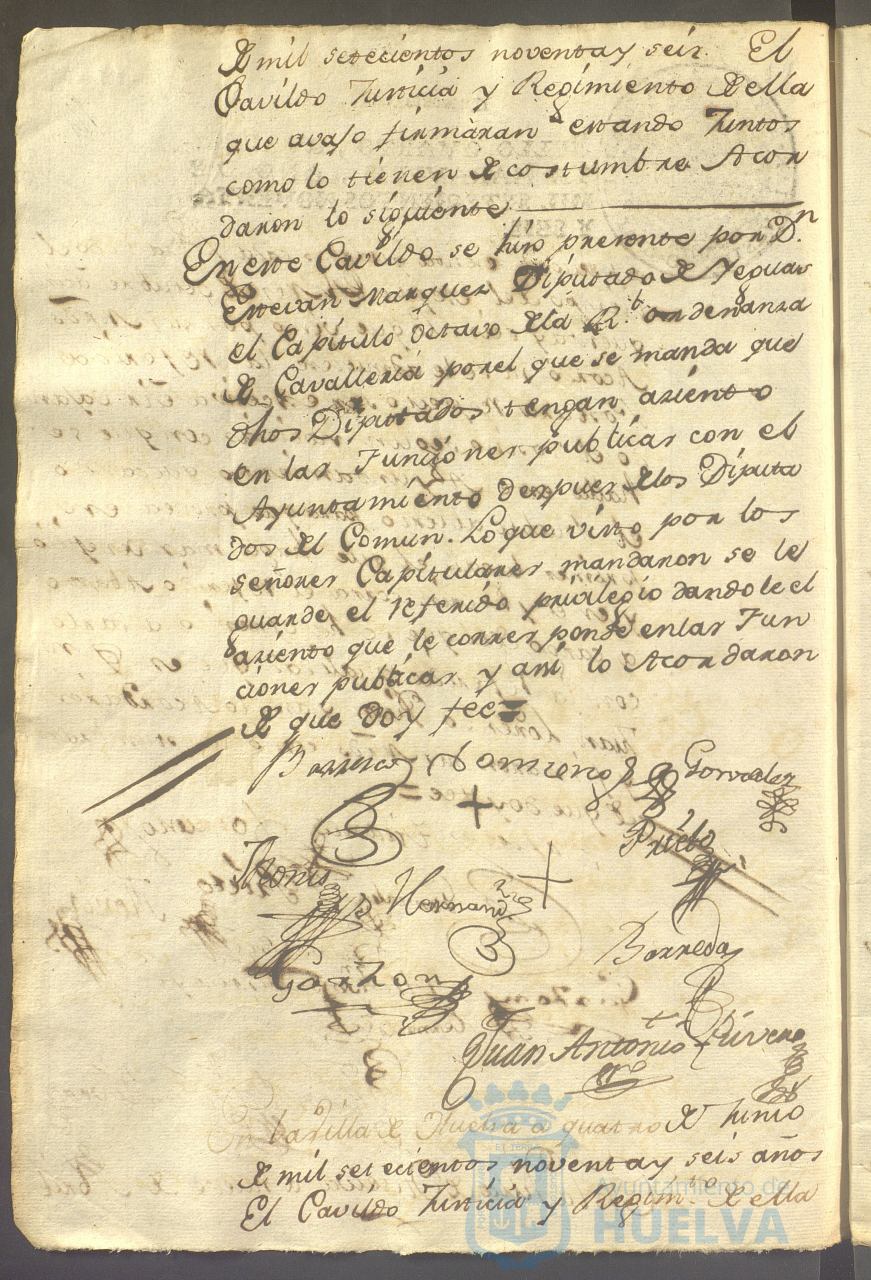 de mil setecientos noventa y seis. El
Cavildo Justicia y Regimiento de ella
que avajo firmàran estando Juntos
como lo tienen de costumbre Acor
daron lo siguiente
En este Cavildo se hiso presente por Dn.
Estevan Marquez Diputado de Yeguas
el Capitulo Octavo dela Rl. ordenanza
de Cavalleria porel que se manda que
dhos Diputados tengan asiento
en las Funciones publicas con el
Ayuntamiento despues delos Diputa
dos del Comun. Loque visto por los
señores Capitulares mandaron se le
guarde el referido privilegio dandole el
asiento que le corresponde enlas Fun
ciones publicas y asi lo Acordaron
de que Doy fee =
Barreda Gonzalez
Prieto
Hernandz
Barreda
Garzon
Juan Antonio Rivera
En la Villa de Huelva a quatro de Junio
de mil setecientos noventa y seis años
El Cavildo Justicia y Regimto. de ella
Ayuntamiento de
HUELVA